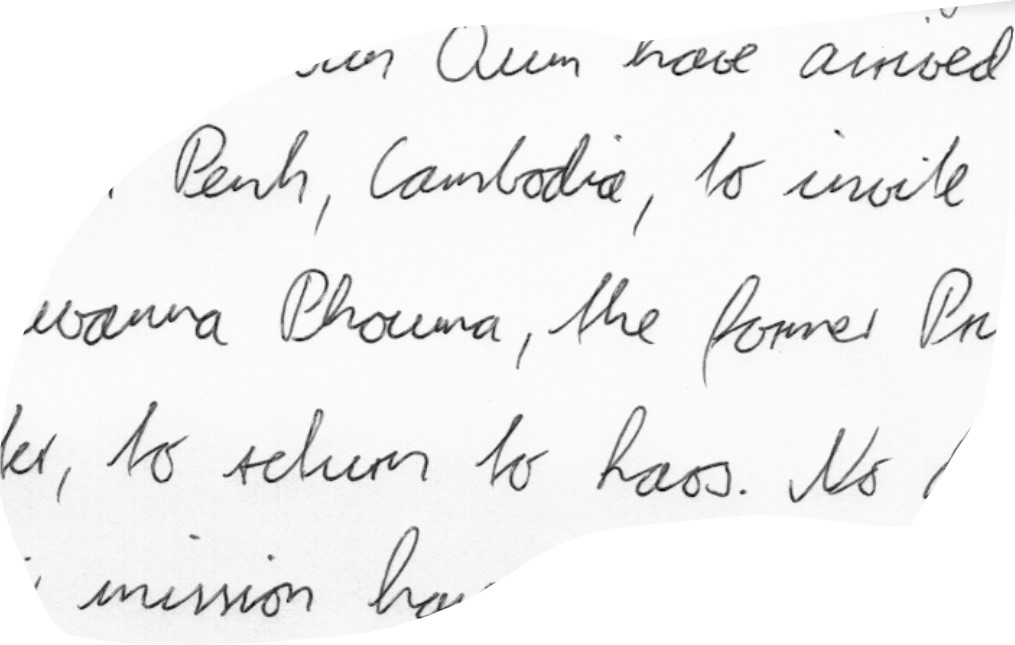 Oum have arrived
Penh, Cambodia, to invite
Phouma, the former
to return to Laos. No
mission